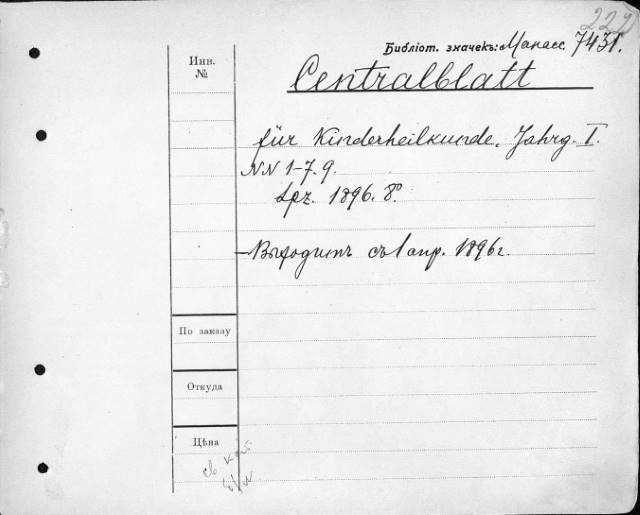 222
Библіот. значекъ: Манасс 7431.
Инв.
№
Centralblatt
für Kinderheilkunde. Jahrg. I.
NN 1-7. 9.
Lpz. 1896. 8°.
– Выходитъ съ 1 апр. 1896 г.
По заказу
Откуда
Цѣна
св кат